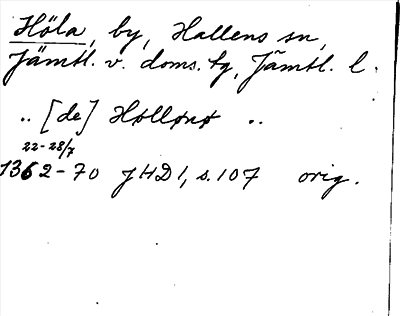 Höla, by, Hallens sn,
Jämtl. v. doms. tg, Jämtl. l.
.. [de] Høllønø ..
22-28/7
1362-70 JHD 1, s. 107 orig.